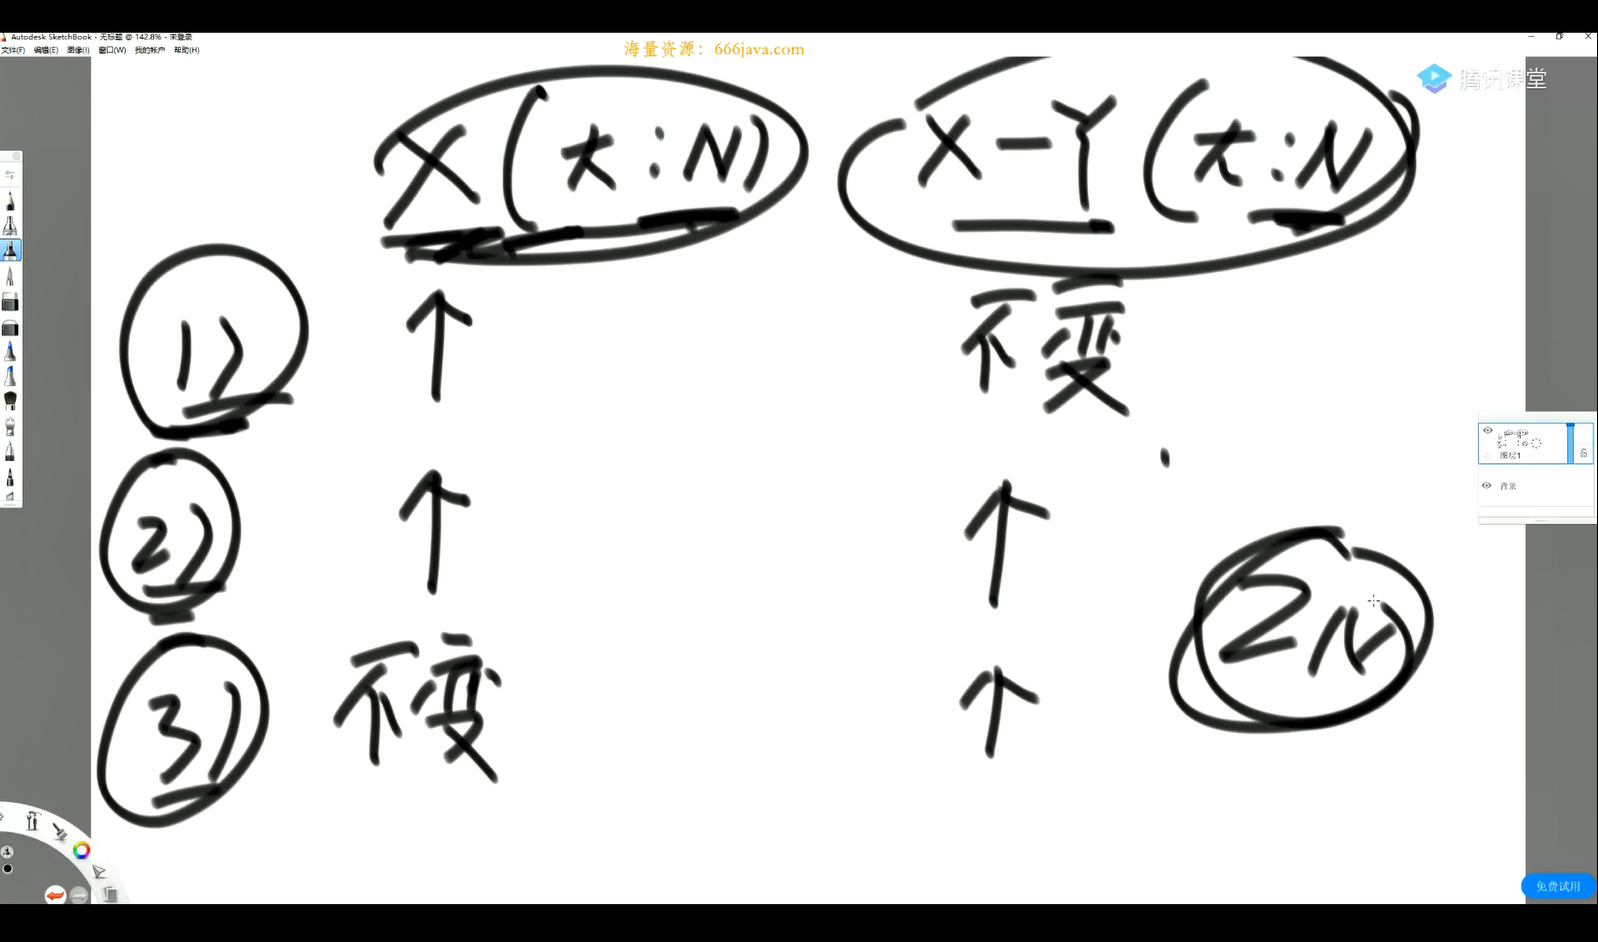 Autodesk SketchBook - 无标题 @ 142.8% - 未登录
文件(F) 编辑(E) 图像(I) 窗口(W) 我的帐户 帮助(H)
海量资源：666java.com
腾讯课堂
X (大:N) X-Y (大:N
1) ↑ 不变
2) ↑ ↑
3) 不变 ↑
2N
图层1
背景
免费试用